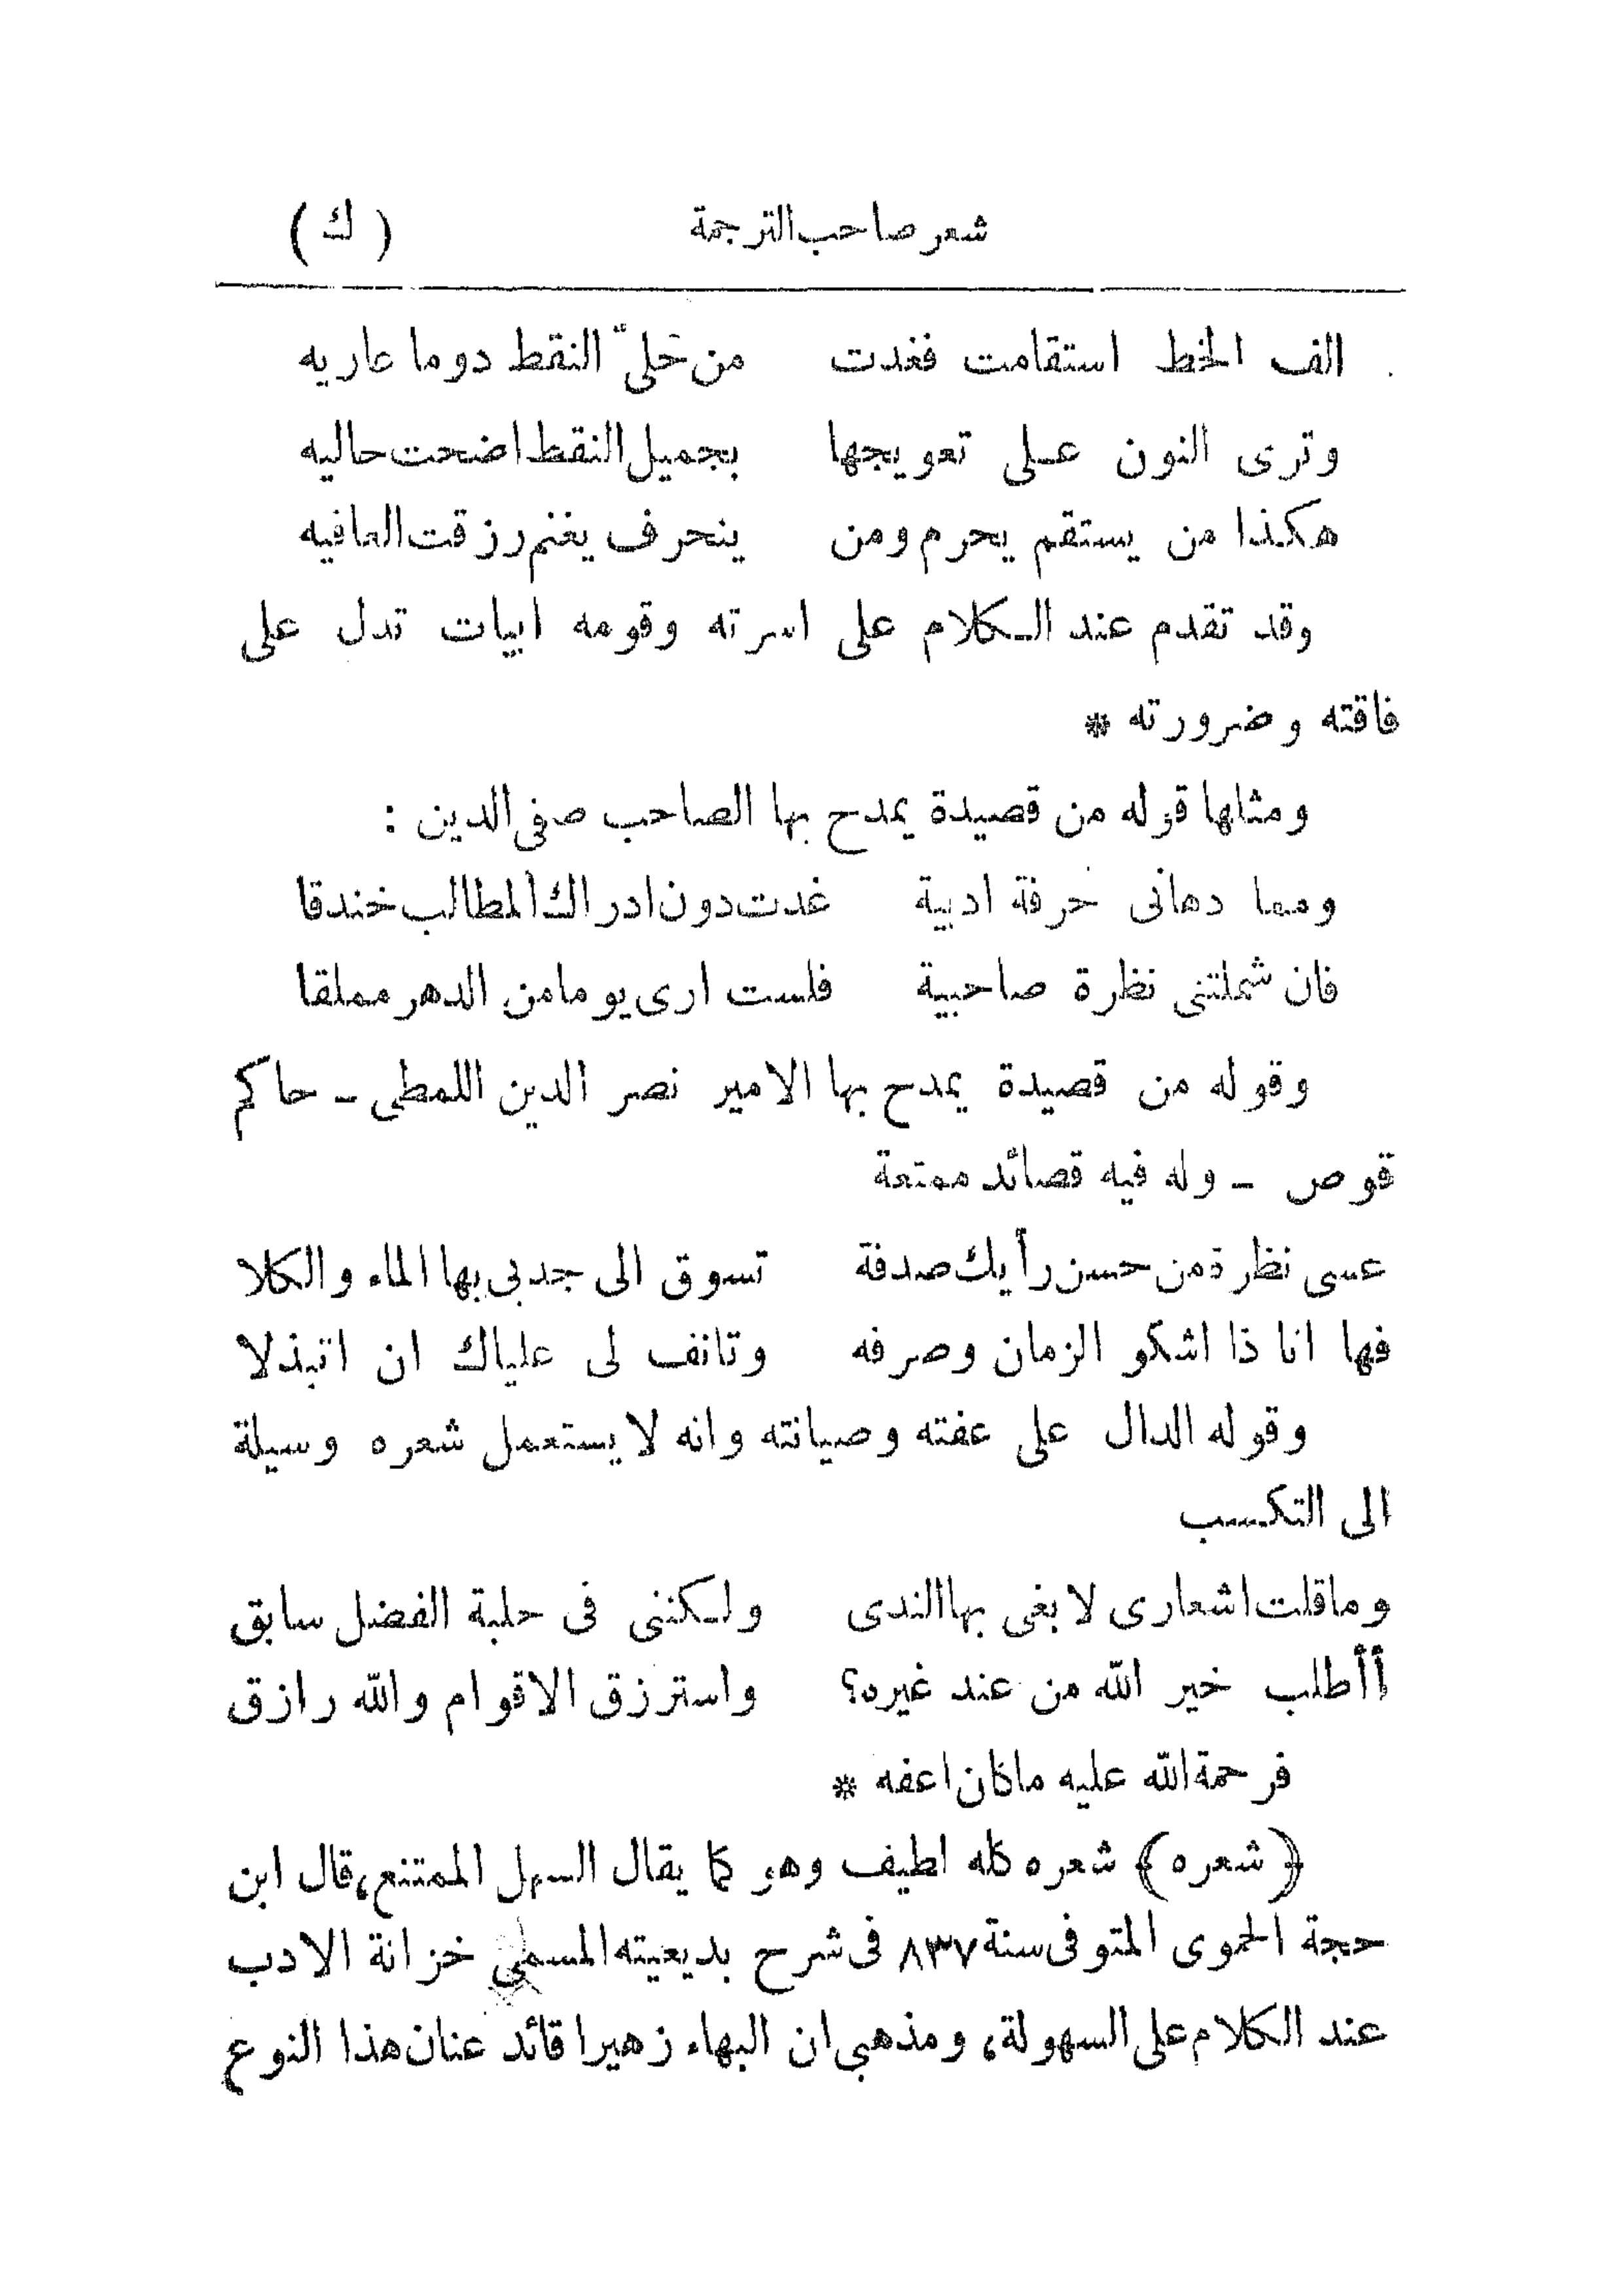 شعر صاحب الترجمة ( ك )
الف الخط استقامت فغدت من حَلىّ النقط دوما عاريه
وترى النون على تعويجها بجميل النقط اضحت حاليه
هكذا من يستقم يحرم ومن ينحرف يغنم رزقت العافيه
وقد تقدم عند الكلام على اسرته وقومه ابيات تدل على
فاقته وضرورته *
ومثلها قوله من قصيدة يمدح بها الصاحب صفى الدين :
ومما دهانى حرفة ادبية غدت دون ادراك المطالب خندقا
فان شملتنى نظرة صاحبية فلست ارى يوما من الدهر مملقا
وقوله من قصيدة يمدح بها الامير نصر الدين اللمطى – حاكم
قوص – وله فيه قصائد ممتعة
عسى نظرة من حسن رأيك صدفة تسوق الى جدبى بها الماء والكلا
فها انا ذا اشكو الزمان وصرفه وتانف لى علياك ان اتبذلا
وقوله الدال على عفته وصيانته وانه لا يستعمل شعره وسيلة
الى التكسب
وما قلت اشعارى لابغى بها الندى ولكننى فى حلبة الفضل سابق
أأطلب خير الله من عند غيره؟ واسترزق الاقوام والله رازق
فرحمة الله عليه ما كان اعفه *
﴿ شعره ﴾ شعره كله لطيف وهو كما يقال السهل الممتنع، قال ابن
حجة الحموى المتوفى سنة ٨٣٧ فى شرح بديعيته المسمى خزانة الادب
عند الكلام على السهولة، ومذهبى ان البهاء زهيرا قائد عنان هذا النوع